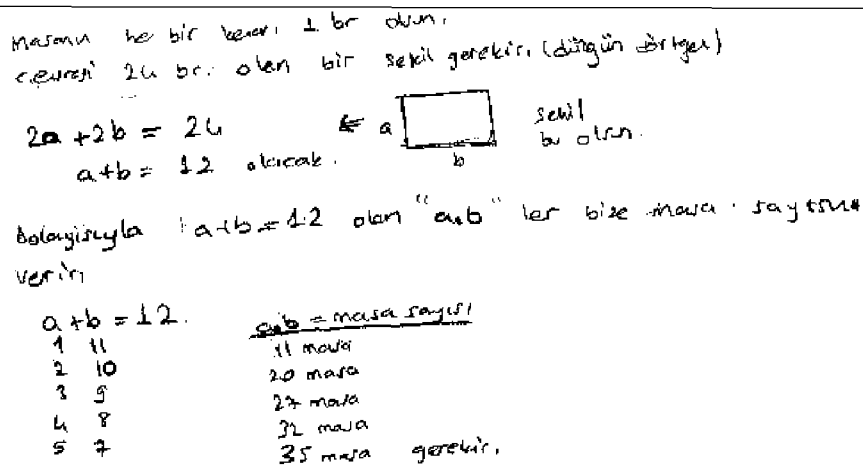 masanın her bir kenarı 1 br olsun.
çevresi 24 br. olan bir şekil gerekir. (düzgün dörtgen)
2a + 2b = 24 ⇐ a şekil
a+b = 12 olacak. b bu olsun.
Dolayısıyla a+b=12 olan "a.b" ler bize masa sayısını
verir.
a+b = 12. a.b = masa sayısı
1 11 11 masa
2 10 20 masa
3 9 27 masa
4 8 32 masa
5 7 35 masa gerekir.